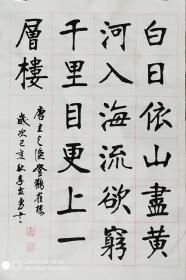 白日依山盡黃
河入海流欲窮
千里目更上一
層樓
唐王之渙登鸛雀樓
歲次己亥秋李